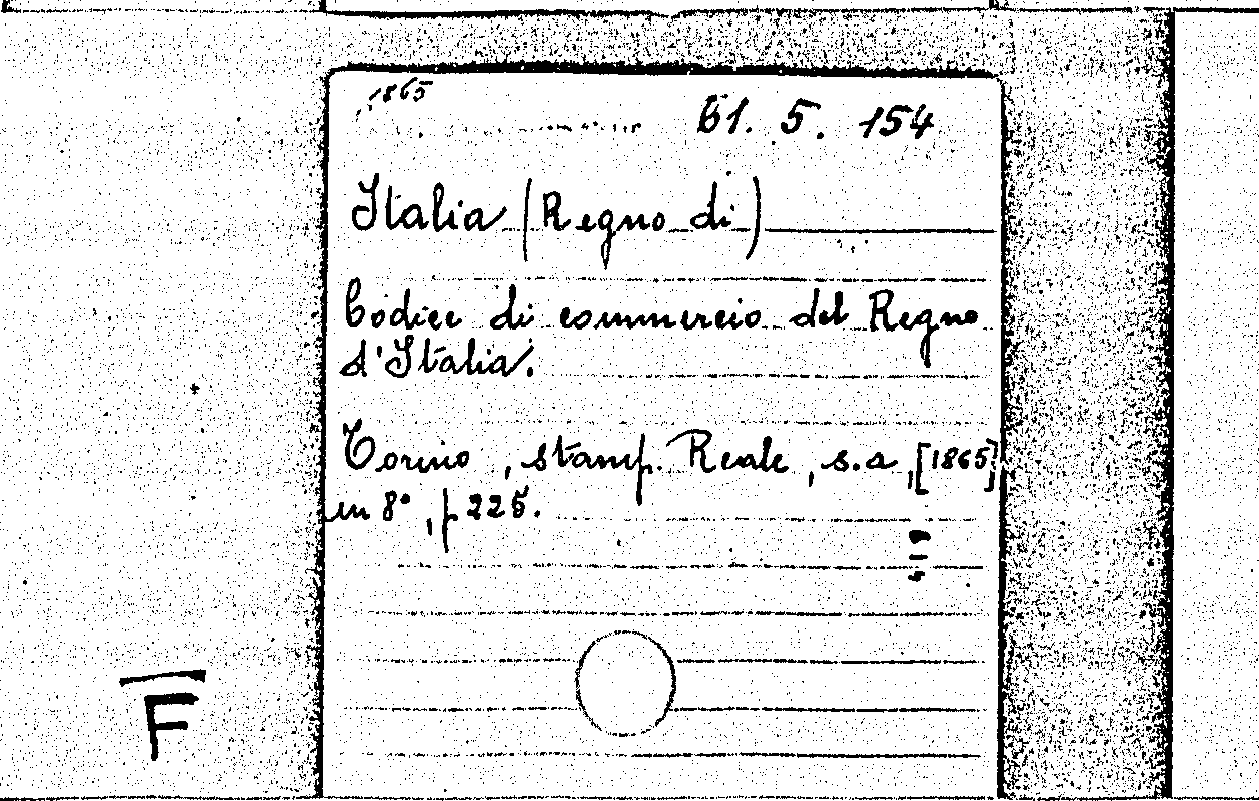 1865
61. 5. 154
Italia (Regno di)
Codice di commercio del Regno
d'Italia.
Torino, stamp. Reale, s.a, [1865]
in 8°, p 225.
F